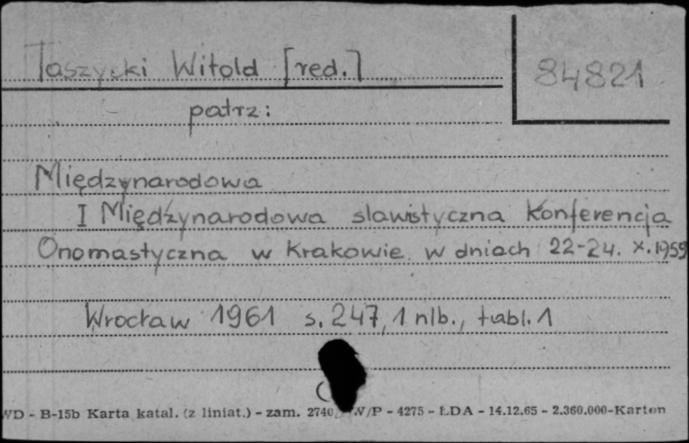 Taszycki Witold [red.]
84821
patrz:
Międzynarodowa
I Międzynarodowa slawistyczna Konferencja
Onomastyczna w Krakowie w dniach 22-24. X. 1959
Wrocław 1961 s. 247, 1 nlb., tabl. 1
WD - B-15b Karta katal. (z liniat.) - zam. 2740 W/P - 4275 - ŁDA - 14.12.65 - 2.360.000-Karton